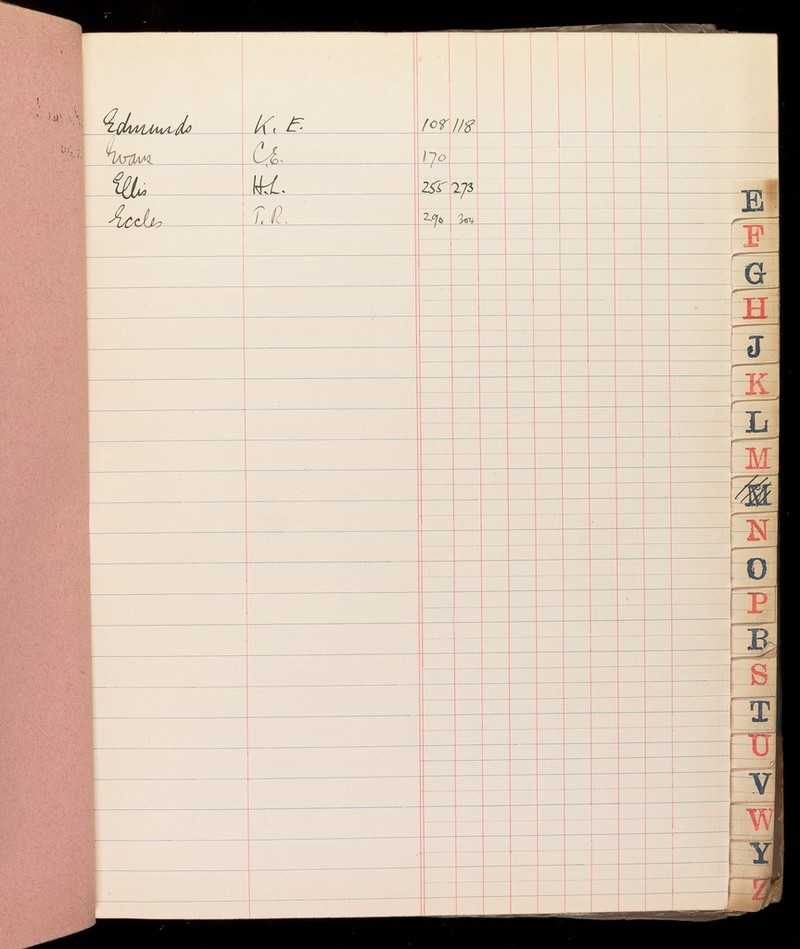 Edmunds K. E. 108 118
Evans C.E. 170
Ellis H.L. 255 273
Eccles T. R. 290 304
E
F
G
H
J
K
L
M
M
N
O
P
R
S
T
U
V
W
Y
Z